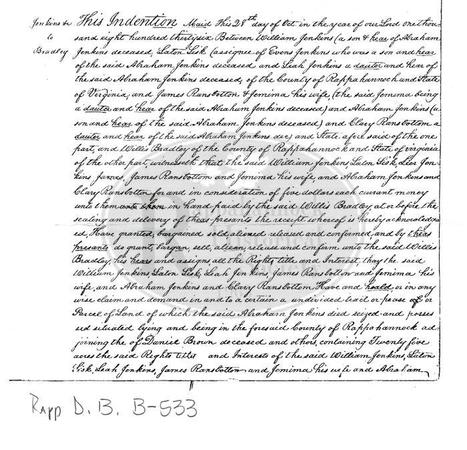 Jenkins to Bradley
This Indention Maid This 28th day of Oct in the year of our Lord one thou
sand eight hundred thirtysix Between William Jenkins (a son & hear of Abraham
Jenkins deceased, Laton Sisk (assignee of Evens Jenkins who was a son and hear
of the said Abraham Jenkins deceased and Leah Jenkins a dauter and hear of
the said Abraham Jenkins deceased, of the County of Rappahannock and State
of Virginia, and James Ransbottom & Jemima his wife, (the said Jemima being
a dauter and hear of the said Abraham Jenkins deceased) and Abraham Jenkins (a
son and hear of the said Abraham Jenkins deceased) and Clary Ransbottom a
dauter and hear of the said Abraham Jenkins and State afore said of the one
part, and Willis Bradley of the County of Rappahannock and State of virginia
of the other part, witnesseth that the said William Jenkins Laton Sisk, Leah Jen
kins, James Ransbottom and Jemima his wife, and Abraham Jenkins and
Clary Ransbottom for and in consideration of five dollars each currant money
unto them in hand paid by the said Willis Bradley, at or before the
sealing and delivery of these presents the receipt whereof is hereby acknowledg
ed, Have granted, bargened sold aliened released and confirmed, and by these
presents do grant, bargan, sell, alean, release and confarm unto the said Willis
Bradley, his hears and assigns all the Right title and Interest, thay the said
William Jenkins, Laton Sisk, Leah Jenkins, James Ransbottom and Jemima his
wife, and Abraham Jenkins and Clary Ransbottom Have and or in any
wise claim and demand in and to a certain a undivided trait or pease of or
Parcel of Land of which the said Abraham Jenkins died seized and posses
sed situated lying and being in the foresaid County of Rappahannock ad
joining the of Daniel Brown deceased and others, containing Twenty five
acres the said Right title and Interests of the said William Jenkins, Laton
Sisk, Leah Jenkins, James Ransbottom and Jemima his wife and Abraham
Rapp D. B. B-533